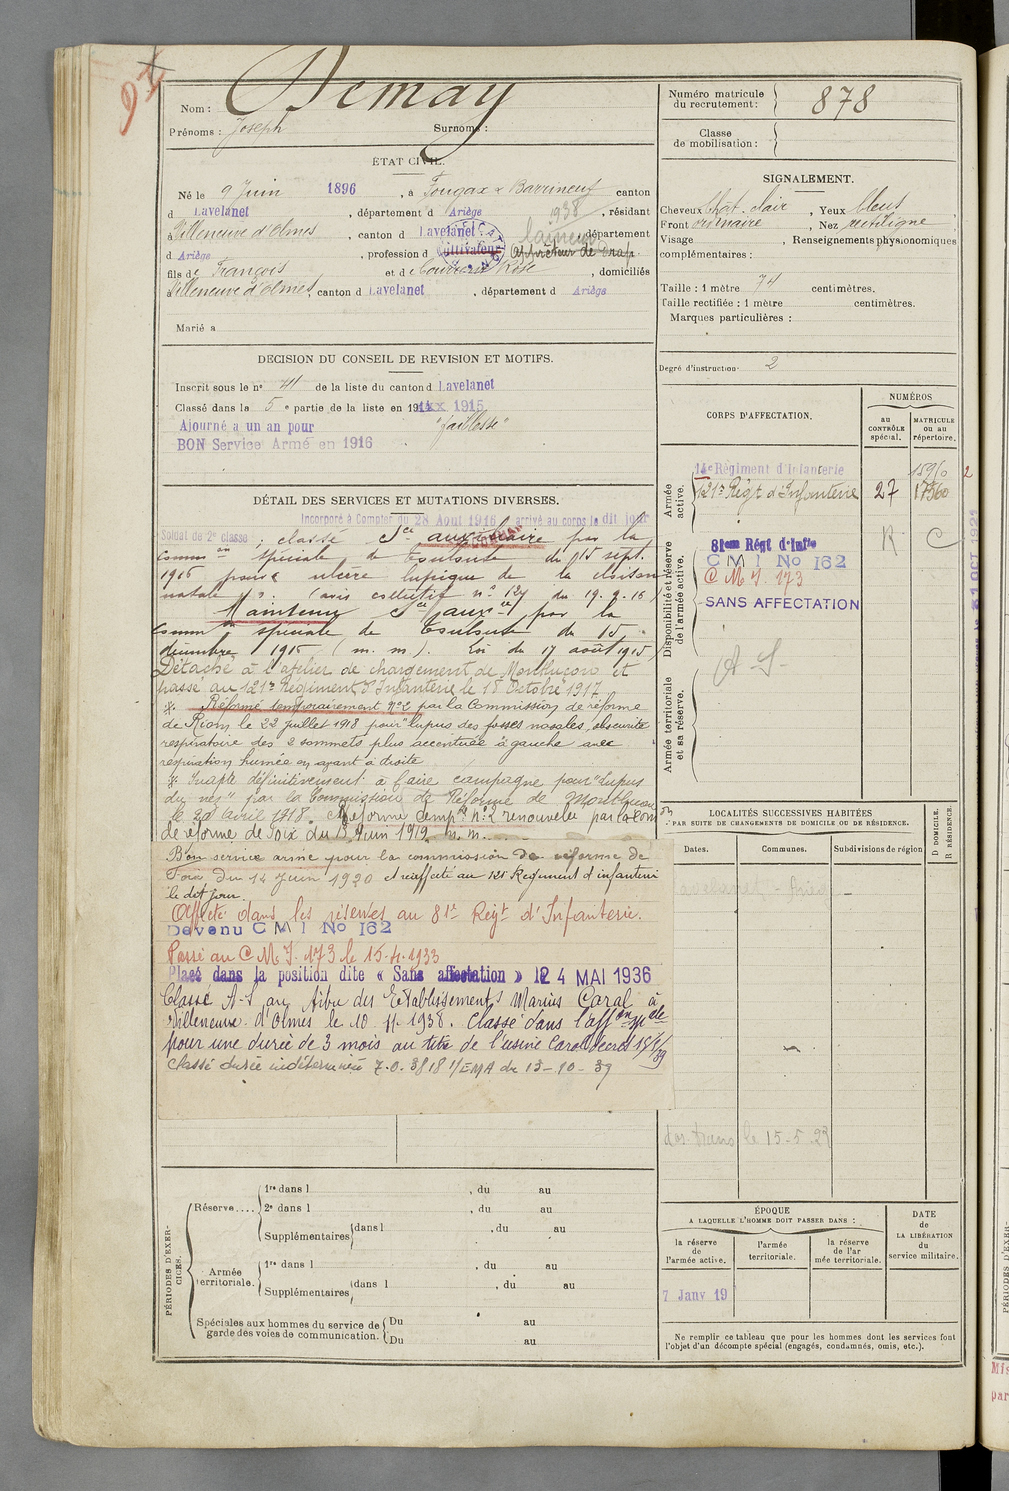 Nom : Demay
Prénoms : Joseph Surnoms :
ÉTAT CIVIL.
Né le 9 Juin 1896, à Fougax & Barrineuf canton
d Lavelanet, département d Ariège, résidant
1938
à Villeneuve d'Olmes, canton d Lavelanet, département
d Ariège, profession d Cultivateur Apprêteur de Drap
fils de François et de Rose, domiciliés
à Villeneuve d'Olmes, canton d Lavelanet, département d Ariège
Marié a
DECISION DU CONSEIL DE REVISION ET MOTIFS.
Inscrit sous le no 41 de la liste du canton d Lavelanet
Classé dans la 5e partie de la liste en 1915
Ajourné a un an pour "faiblesse"
BON Service Armé en 1916
DÉTAIL DES SERVICES ET MUTATIONS DIVERSES.
Incorporé à Compter du 28 Aout 1916 arrivé au corps le dit jour
Soldat de 2e classe ; classé Sce auxiliaire par la
Common spéciale de Toulouse du 15 sept.
1916 pour « ulcère lupique de la cloison
nasale ». (avis collectif no 124 du 19.9.16)
Maintenu Sce auxre par la
Common spéciale de Toulouse du 15
décembre 1916 (m. m.). Loi du 17 août 1915)
Détaché à l'atelier de chargement de Montluçon et
passé au 121e Régiment d'Infanterie le 18 Octobre 1917
Réformé temporairement No2 par la Commission de réforme
de Riom le 22 juillet 1918 pour "lupus des fosses nasales, obscurité
respiratoire des 2 sommets plus accentuée à gauche avec
respiration humée en avant à droite
Inapte définitivement à faire campagne pour "Lupus
du nez" par la Commission de Réforme de Montluçon
le 20 avril 1918. Réformé Tempre no2 renouvelée par la Com
de réforme de Foix du 13 Juin 1919 m. m.
Bon service armé pour la commission de réforme de
Foix du 14 Juin 1920 et réaffecté au 121 Régiment d'infanterie
le dit jour.
Affecté dans les réserves au 81e Régt d'Infanterie.
Devenu C M I No 162
Passé au C M I. 173 le 15.4.1933
Placé dans la position dite « Sans affectation » le 24 MAI 1936
Classé A-S au titre des Etablissements Marius Caral à
Villeneuve d'Olmes le 10.11.1938. Classé dans l'affon spcle
pour une durée de 3 mois au titre de l'usine Caral
Classé durée indéterminée 7.0.3818 1/EMA du 13-10-39
PÉRIODES D'EXERCICES.
Réserve....
1re dans l , du au
2e dans l , du au
Supplémentaires dans l , du au
Armée territoriale.
1re dans l , du au
Supplémentaires dans l , du au
Spéciales aux hommes du service de garde des voies de communication.
Du au
Du au
Numéro matricule du recrutement : 878
Classe de mobilisation :
SIGNALEMENT.
Cheveux chat. clair, Yeux bleus
Front ordinaire, Nez rectiligne
Visage , Renseignements physionomiques
complémentaires :
Taille : 1 mètre 74 centimètres.
Taille rectifiée : 1 mètre centimètres.
Marques particulières :
Degré d'instruction 2
CORPS D'AFFECTATION.
NUMÉROS
au CONTRÔLE spécial.
MATRICULE ou au répertoire.
Armée active.
14e Régiment d'Infanterie
121e Régt d'Infanterie 27 17560
Disponibilité et réserve de l'armée active.
81eme Régt d'Infie R C
C M I No 162
C M I. 173
SANS AFFECTATION
Armée territoriale et sa réserve.
A S-
LOCALITÉS SUCCESSIVES HABITÉES
PAR SUITE DE CHANGEMENTS DE DOMICILE OU DE RÉSIDENCE.
Dates.
Communes.
Subdivisions de région
D DOMICILE.
R RÉSIDENCE.
Lavelanet - Ariège
le 15-5-27
ÉPOQUE
A LAQUELLE L'HOMME DOIT PASSER DANS :
la réserve de l'armée active.
l'armée territoriale.
la réserve de l'armée territoriale.
DATE de LA LIBÉRATION du service militaire.
7 Janv 19
Ne remplir ce tableau que pour les hommes dont les services font
l'objet d'un décompte spécial (engagés, condamnés, omis, etc.).